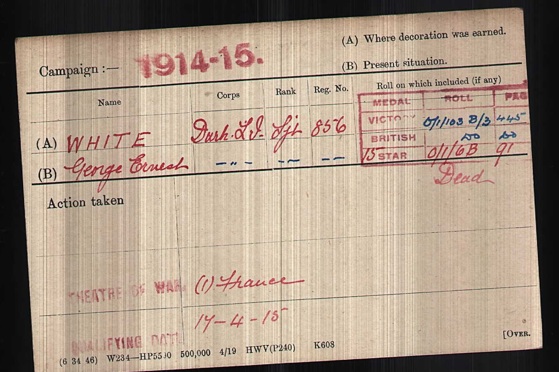 (A) Where decoration was earned.
Campaign :— 1914-15.
(B) Present situation.
Name Corps Rank Reg. No. Roll on which included (if any)
MEDAL ROLL PAGE
(A) WHITE Durh. L.I. Sjt 856 VICTORY O/1/103 B/3 445
BRITISH do do
(B) George Ernest —"— —"— — 15 STAR O/1/6B 91
Dead
Action taken
THEATRE OF WAR. (1) France
QUALIFYING DATE 17-4-15
(6 34 46) W234—HP5590 500,000 4/19 HWV(P240) K608
[OVER.